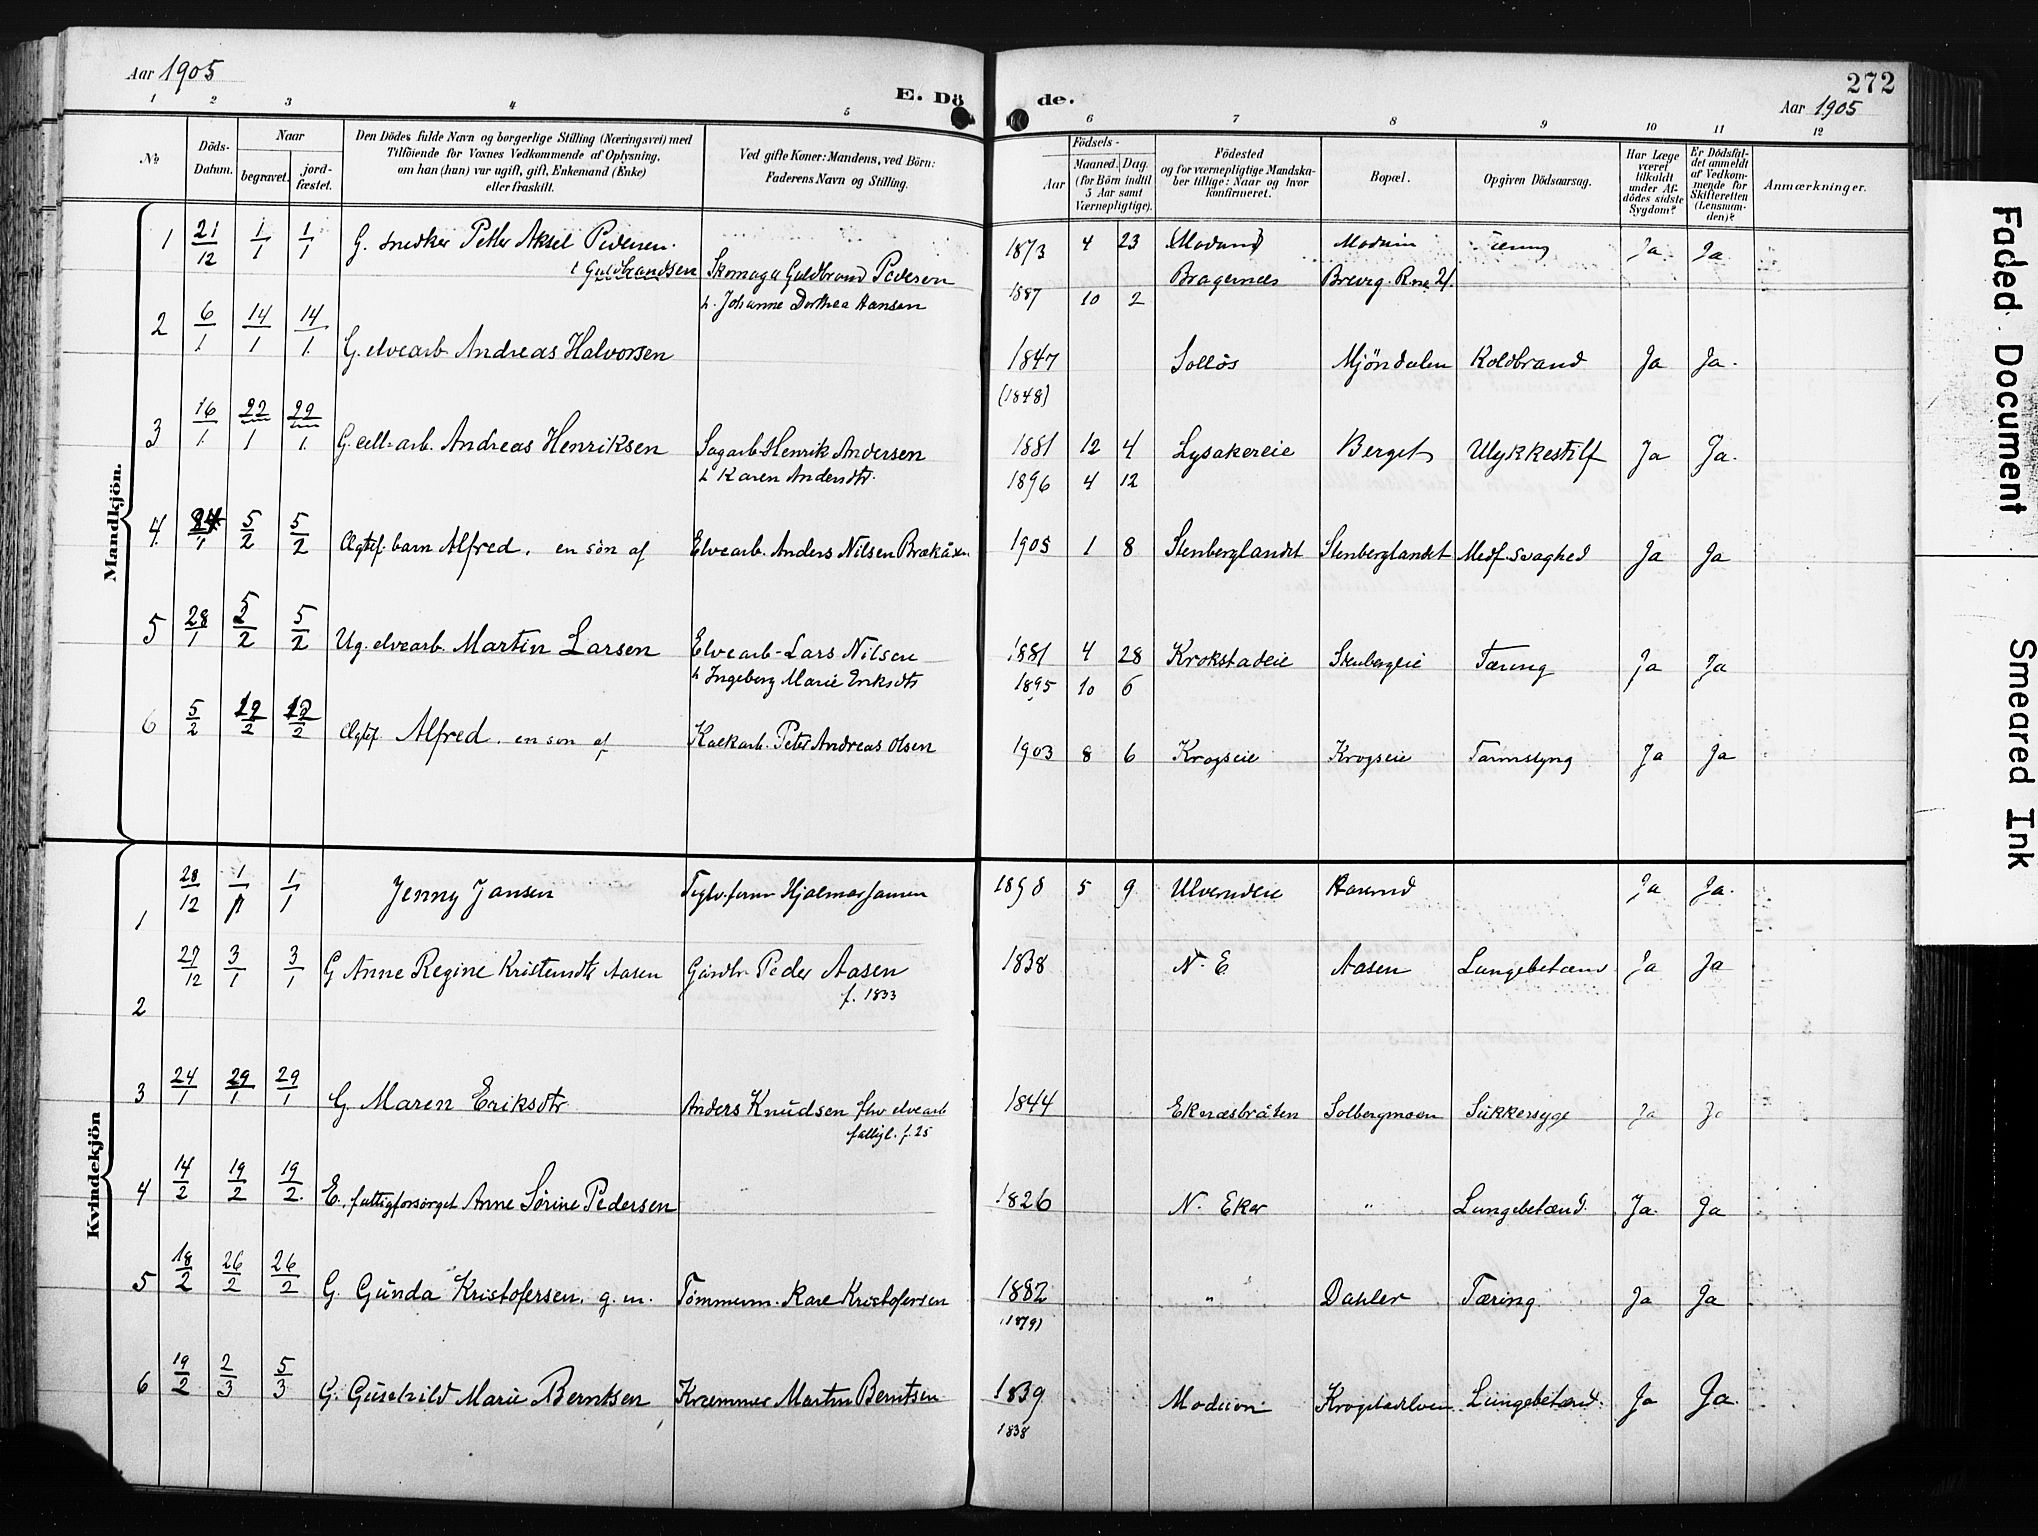 Aar 1905
E. Dö de.
272
Aar 1905
1 2 3 4 5 6 7 8 9 10 11 12
No Döds-Datum. Naar begravet. jord-fæstet.
Den Dödes fulde Navn og borgerlige Stilling (Næringsvei) med
Tilföiende for Voxnes Vedkommende af Oplysning,
om han (hun) var ugift, gift, Enkemand (Enke)
eller fraskilt.
Ved gifte Koner: Mandens, ved Börn:
Faderens Navn og Stilling.
Födsels-
Aar Maaned. Dag.
(for Börn indtil
5 Aar samt
Værnepligtige).
Födested
og for værnepligtige Mandska-
ber tillige: Naar og hvor
konfirmeret.
Bopæl.
Opgiven Dödsaarsag.
Har Læge
været
tilkaldt
under Af-
dödes sidste
Sygdom?
Er Dödsfal-
det anmeldt
af Vedkom-
mende for
Skifteretten
(Lensman-
den)?
Anmærkninger.
Mandkjön.
1 21/12 1/1 1/1 G. snedker Peter Aksel Pedersen. 1873 4 23 Modum Modum Tæring Ja Ja
Guldbrandsen Skomager Guldbrand Pedersen Bragernes
h. Johanne Dorthea Hansen 1887 10 2
2 6/1 14/1 14/1 G. elvearb. Andreas Halvorsen 1847 Mjöndalen Koldbrand Ja Ja.
(1848)
3 16/1 22/1 22/1 G. cell-arb. Andreas Henriksen Sagarb. Henrik Andersen 1881 12 4 Lysakereie Berget Ulykkestilf Ja Ja.
h Karen Andersdtr. 1896 4 12
4. 24/1 5/2 5/2 Ægtef. barn Alfred. en sön af Elvearb. Anders Nilsen 1905 1 8 Stenberglandet Stenberglandet Medf. svaghed Ja Ja
5 28/1 5/2 5/2 Ug. elvearb. Martin Larsen Elvearb. Lars Nilsen 1881 4 28 Krokstadeie Stenbergeie Tæring Ja Ja
h Ingeborg Marie Eriksdtr 1895 10 6
6 5/2 12/2 12/2 Ægtef. Alfred. en sön af Kalkarb. Peter Andreas Olsen 1903 8 6 Krogseie Krogseie Tarmslyng Ja Ja
Kvindekjön
1 28/12 1/1 1/1 Jenny Jansen Hjalmar Jansen 1898 5 9 Ja Ja.
2 27/12 3/1 3/1 G Anne Regine Aasen Gårdbr. Peder Aasen 1838 N. E Aasen Lungebetænd. Ja Ja
f. 1833
3 24/1 29/1 29/1 G. Maren Eriksdtr Anders Knudsen fhv elvearb 1844 Eknæsbråten Solbergmoen Sukkersyge Ja Ja
f. 25
4 14/2 19/2 19/2. E. fattigforsörget Anne Sörine Pedersen 1826 N. Eker " Lungebetænd. Ja. Ja
5 18/2 26/2 26/2 G. Gunda Kristofersen. g. m. Tömmerm. Karl Kristofersen 1882 " Dahler Tæring Ja Ja
(1879)
6 19/2 2/3 5/3 G. Gunhild Marie Berntsen Kræmmer Martin Berntsen 1839 Modum Lungebetænd. Ja Ja.
1838
Faded Document
Smeared Ink